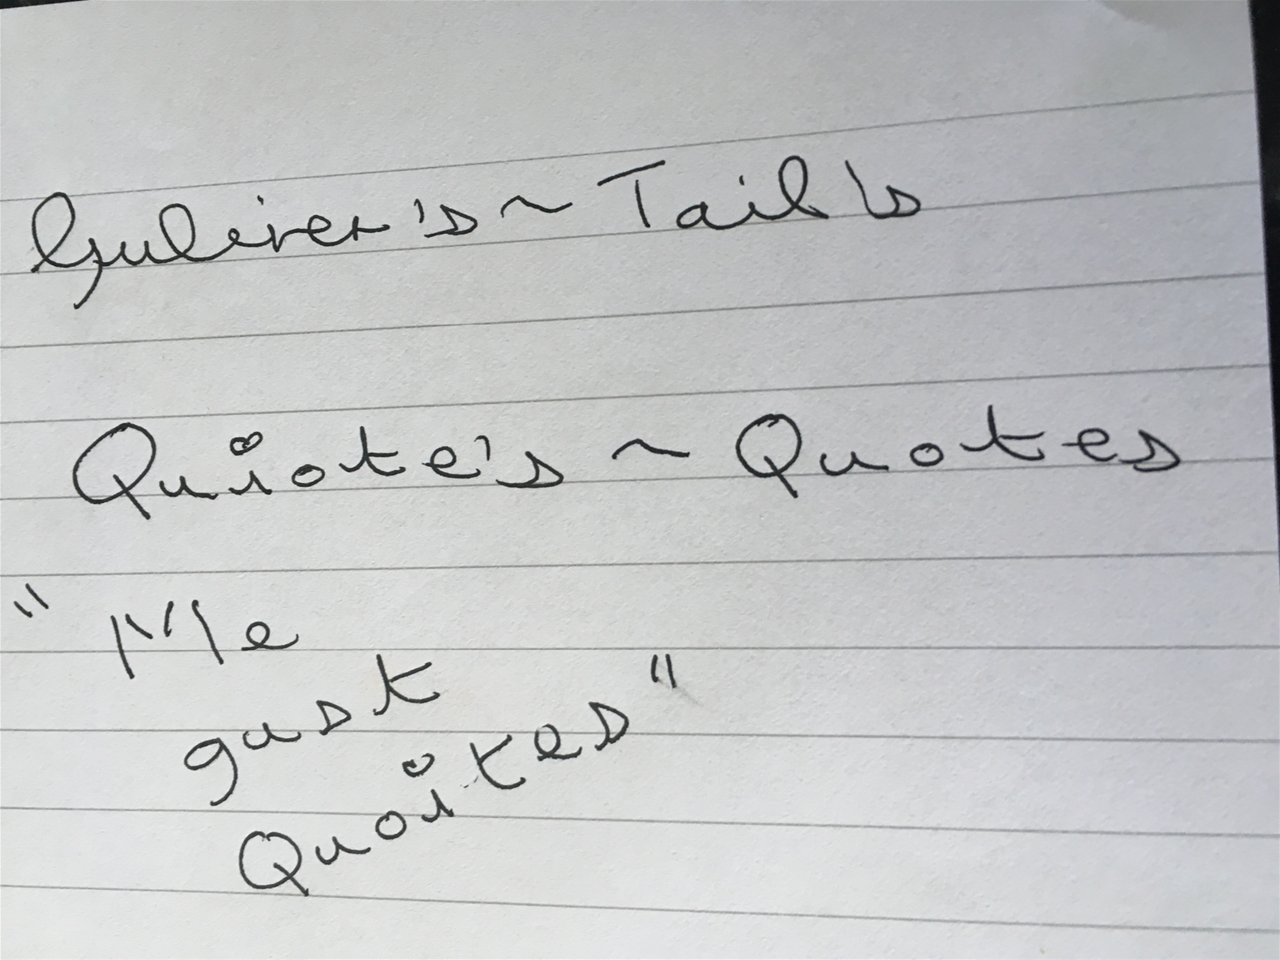 Guliver's ~ Tail's
Quiote's ~ Quotes
"Me
gust
Quoites"